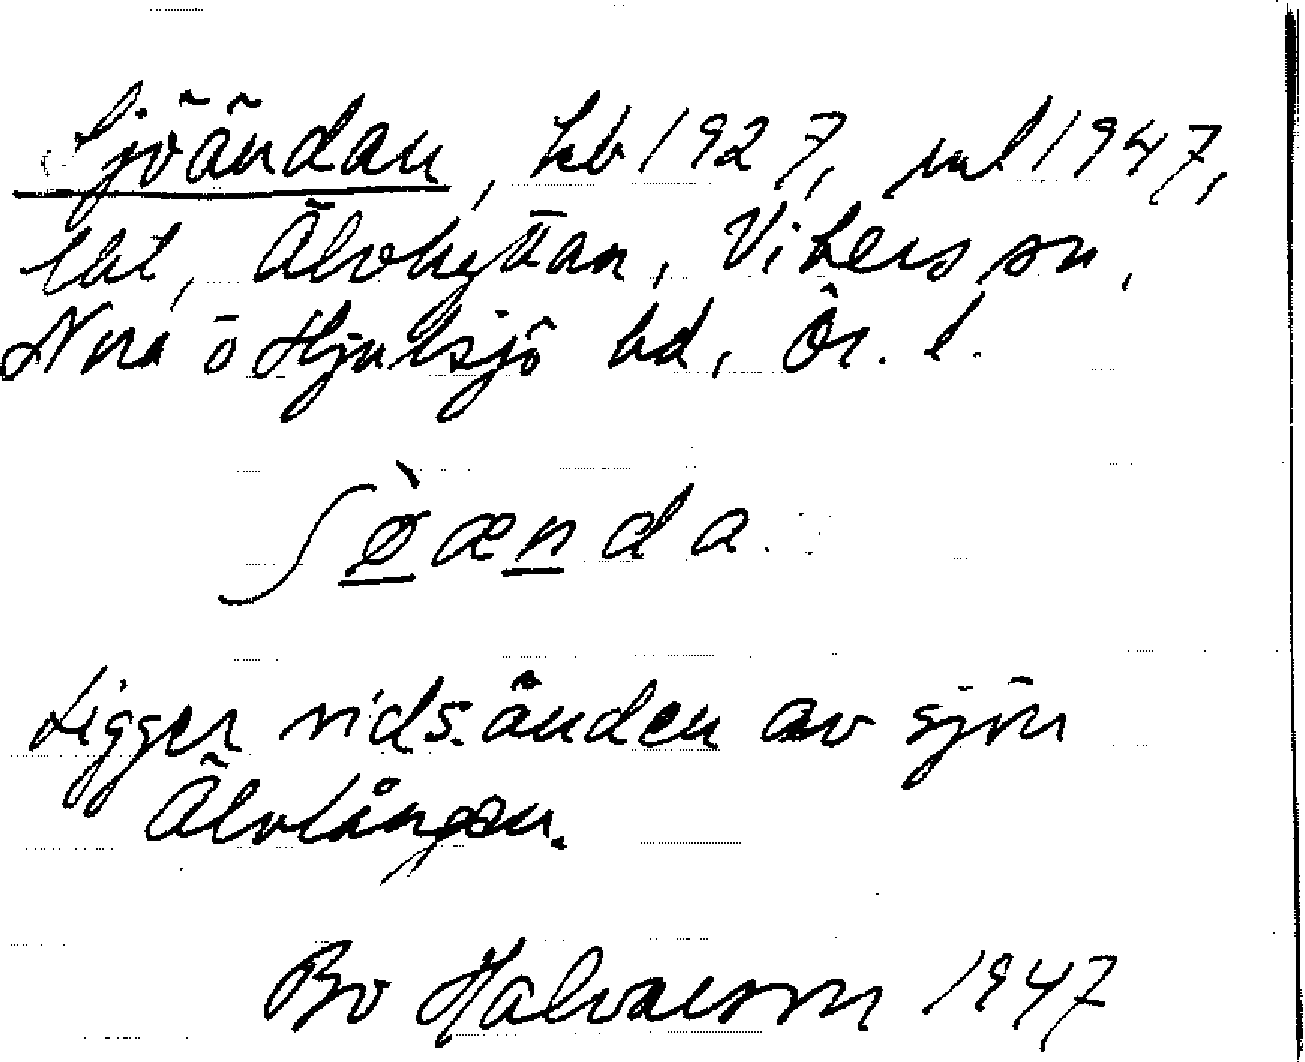 Sjöändan, kb 1927, ml 1947,
lht, Älvhyttan, Vikers sn,
Nora o Hjulsjö bd, Ör. l.
ʃø̀ænda
Ligger vid s. änden av sjön
Älvlången.
Bo Halvarson 1947